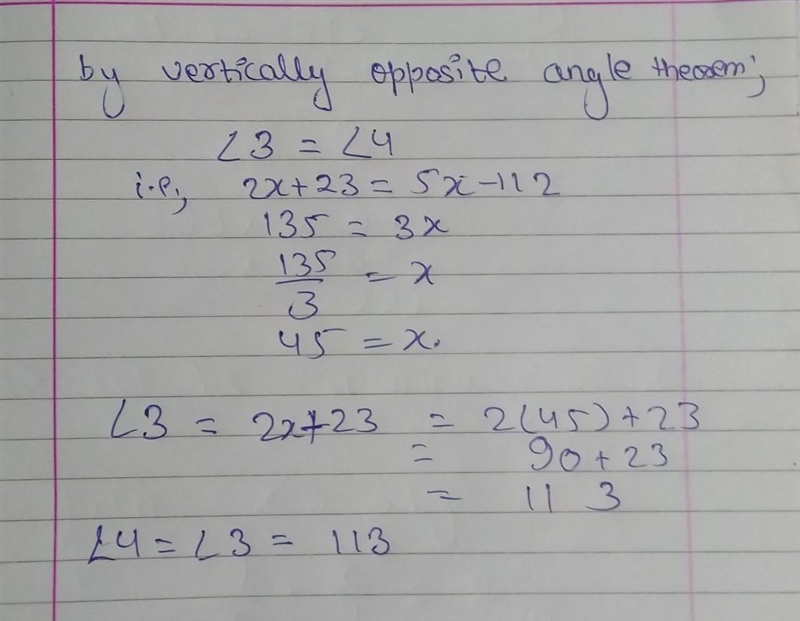 by vertically opposite angle theorem;
∠3 = ∠4
i.e, 2x+23 = 5x-112
135 = 3x
135/3 = x
45 = x.
∠3 = 2x+23 = 2(45)+23
= 90+23
= 113
∠4 = ∠3 = 113